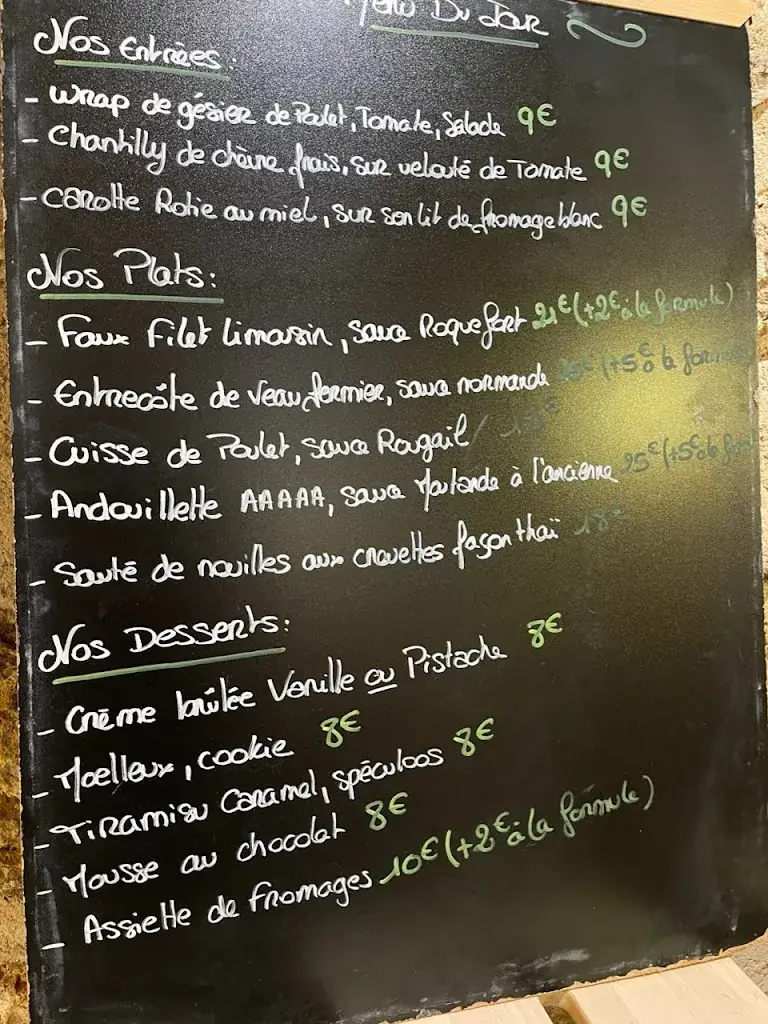 Menu Du Jour
Nos Entrées :
- Wrap de gésier de Poulet, Tomate, Salade 9€
- Chantilly de chèvre frais, sur velouté de Tomate 9€
- Carotte Rotie au miel, sur son lit de fromage blanc 9€
Nos Plats :
- Faux Filet Limousin, sauce Roquefort 21€ (+2€ à la formule)
- Entrecôte de Veau fermier, sauce normande (+5€ à la formule
- Cuisse de Poulet, sauce Rougail
- Andouillette AAAAA, sauce Moutarde à l'ancienne 25€ (+5€ à la
- Sauté de nouilles aux crevettes façon thaï 18€
Nos Desserts :
- Crème brûlée Vanille ou Pistache 8€
- Moelleux, cookie 8€
- Tiramisu Caramel, spéculoos 8€
- Mousse au chocolat 8€
- Assiette de fromages 10€ (+2€ à la formule)